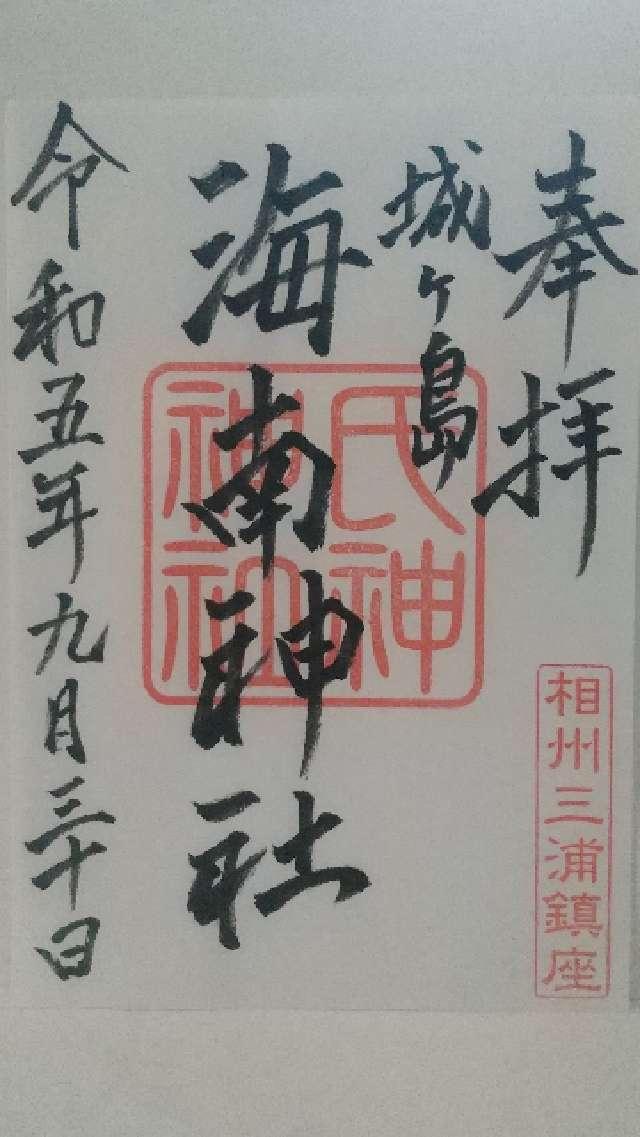 奉拝
相州三浦鎮座
城ヶ島
海南神社
氏神
神社
令和五年九月三十日